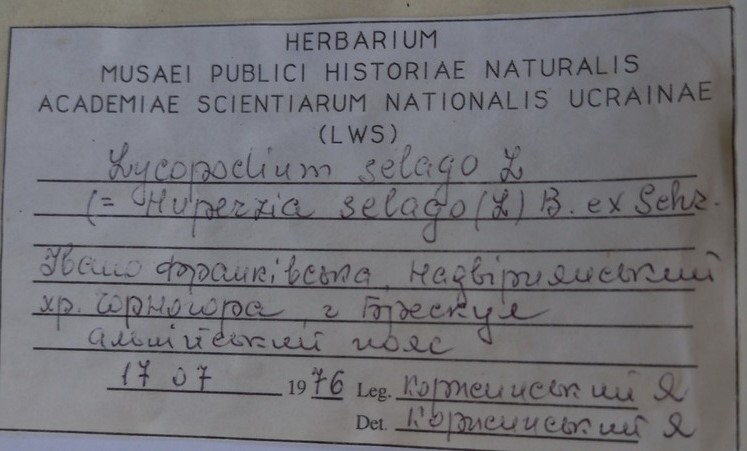 HERBARIUM
MUSAEI PUBLICI HISTORIAE NATURALIS
ACADEMIAE SCIENTIARUM NATIONALIS UCRAINAE
(LWS)
Lycopodium selago L
(= Huperzia selago (L) B. ex Schr.
Івано Франківська, Надвірнянський
хр. Чорногора, г Брескул
альпійський пояс
17 07 1976 Leg. Коржинський Я
Det. Коржинський Я